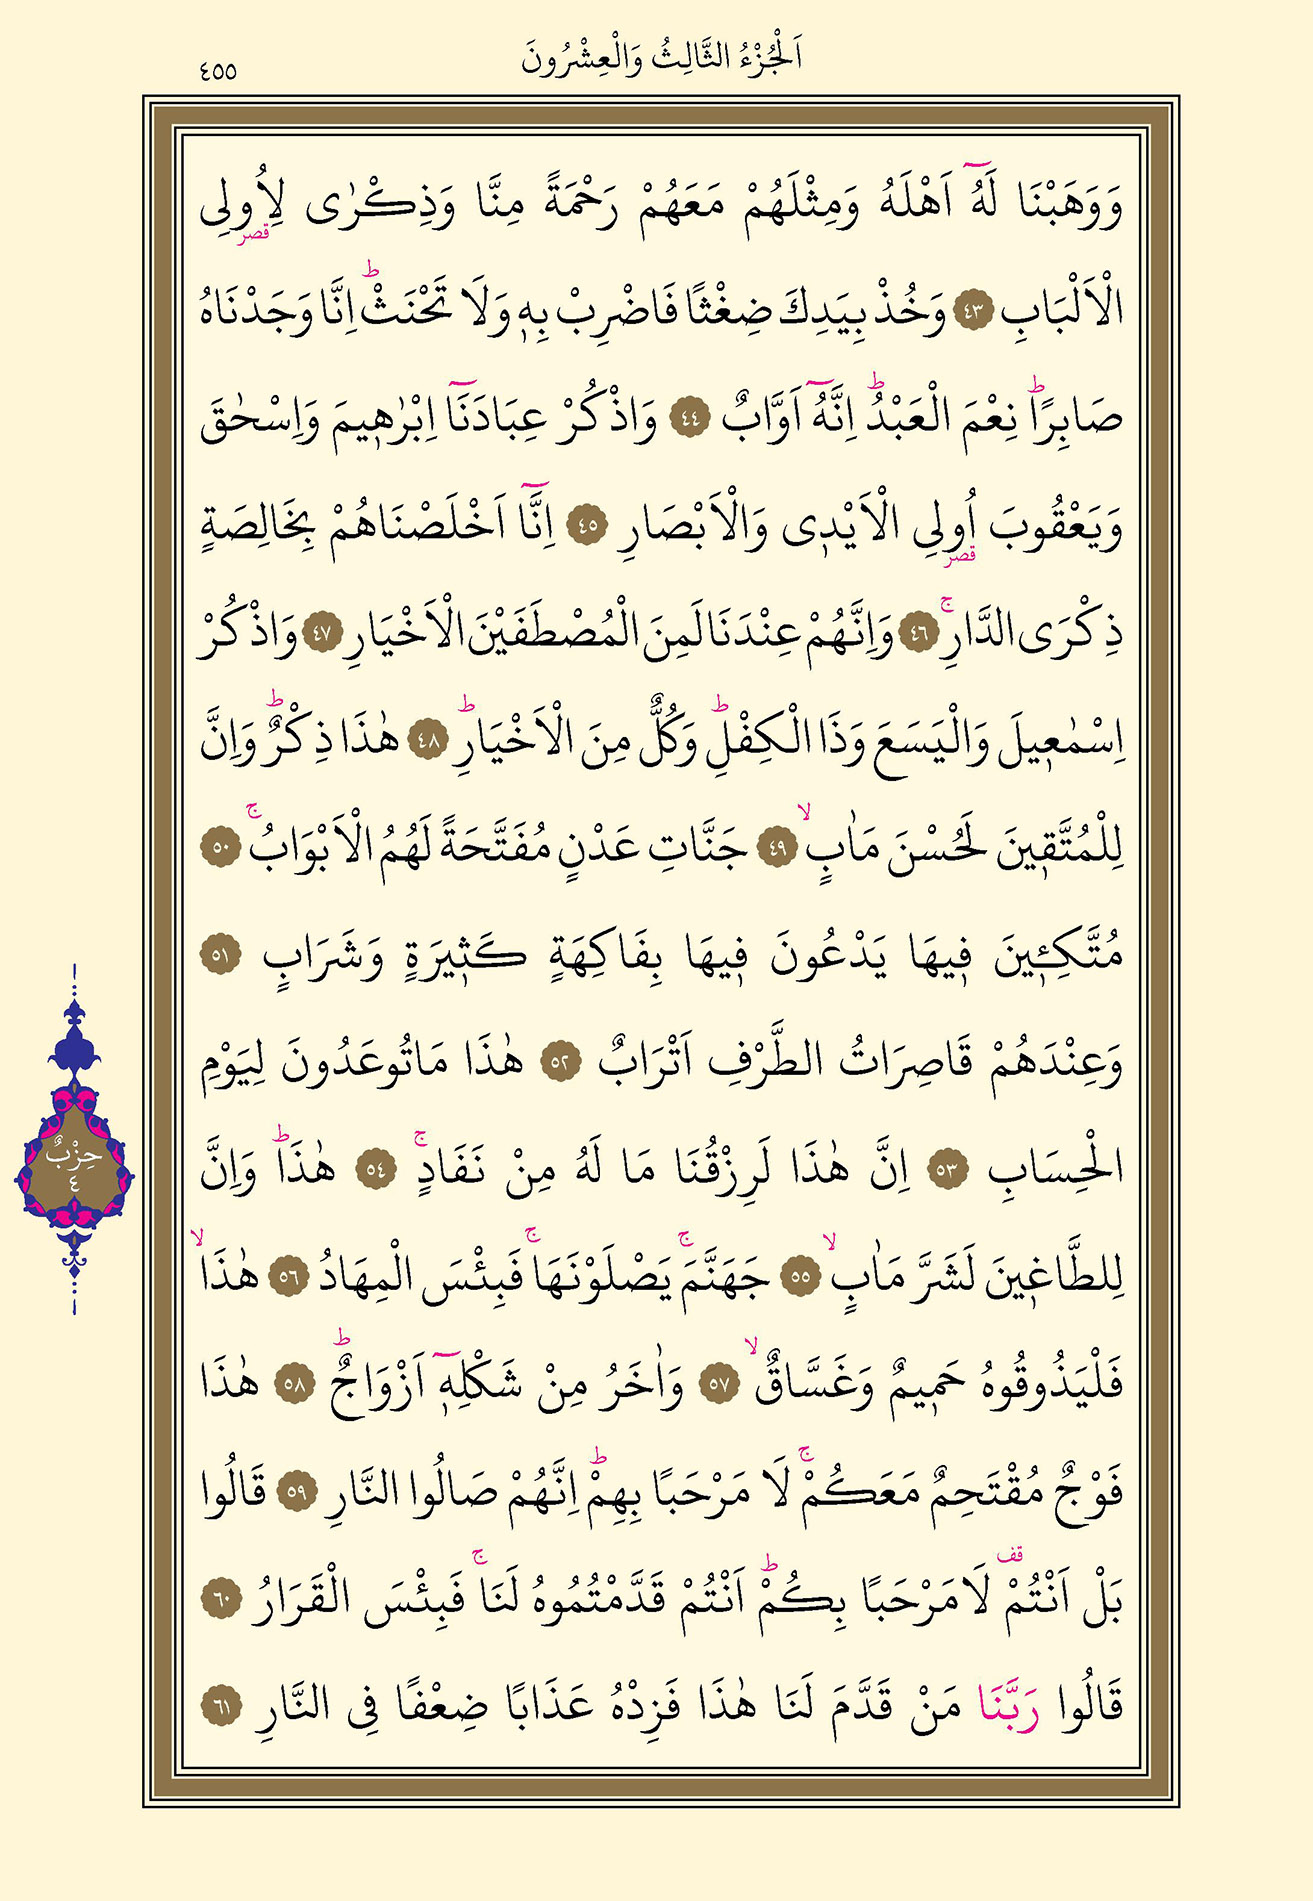 اَلْجُزْءُ الثَّالِثُ وَالْعِشْرُونَ
٤٥٥
وَوَهَبْنَا لَهُٓ اَهْلَهُ وَمِثْلَهُمْ مَعَهُمْ رَحْمَةً مِنَّا وَذِكْرٰى لِاُو۬لِى
قصر
الْاَلْبَابِ ﴿٤٣﴾ وَخُذْ بِيَدِكَ ضِغْثًا فَاضْرِبْ بِهٖ وَلَا تَحْنَثْۜ اِنَّا وَجَدْنَاهُ
صَابِرًاۜ نِعْمَ الْعَبْدُۜ اِنَّهُٓ اَوَّابٌ ﴿٤٤﴾ وَاذْكُرْ عِبَادَنَٓا اِبْرٰهٖيمَ وَاِسْحٰقَ
وَيَعْقُوبَ اُو۬لِى الْاَيْدٖى وَالْاَبْصَارِ ﴿٤٥﴾ اِنَّٓا اَخْلَصْنَاهُمْ بِخَالِصَةٍ
قصر
ذِكْرَى الدَّارِۚ ﴿٤٦﴾ وَاِنَّهُمْ عِنْدَنَا لَمِنَ الْمُصْطَفَيْنَ الْاَخْيَارِ ﴿٤٧﴾ وَاذْكُرْ
اِسْمٰعٖيلَ وَالْيَسَعَ وَذَا الْكِفْلِۜ وَكُلٌّ مِنَ الْاَخْيَارِۜ ﴿٤٨﴾ هٰذَا ذِكْرٌۜ وَاِنَّ
لِلْمُتَّقٖينَ لَحُسْنَ مَاٰبٍۙ ﴿٤٩﴾ جَنَّاتِ عَدْنٍ مُفَتَّحَةً لَهُمُ الْاَبْوَابُۚ ﴿٥٠﴾
مُتَّكِـٖٔينَ فٖيهَا يَدْعُونَ فٖيهَا بِفَاكِهَةٍ كَثٖيرَةٍ وَشَرَابٍ ﴿٥١﴾
وَعِنْدَهُمْ قَاصِرَاتُ الطَّرْفِ اَتْرَابٌ ﴿٥٢﴾ هٰذَا مَاتُوعَدُونَ لِيَوْمِ
الْحِسَابِ ﴿٥٣﴾ اِنَّ هٰذَا لَرِزْقُنَا مَا لَهُ مِنْ نَفَادٍۚ ﴿٥٤﴾ هٰذَاۜ وَاِنَّ
لِلطَّاغٖينَ لَشَرَّ مَاٰبٍۙ ﴿٥٥﴾ جَهَنَّمَۚ يَصْلَوْنَهَاۚ فَبِئْسَ الْمِهَادُ ﴿٥٦﴾ هٰذَاۙ
فَلْيَذُوقُوهُ حَمٖيمٌ وَغَسَّاقٌۙ ﴿٥٧﴾ وَاٰخَرُ مِنْ شَكْلِهٖٓ اَزْوَاجٌۜ ﴿٥٨﴾ هٰذَا
فَوْجٌ مُقْتَحِمٌ مَعَكُمْۚ لَا مَرْحَبًا بِهِمْۜ اِنَّهُمْ صَالُوا النَّارِ ﴿٥٩﴾ قَالُوا
بَلْ اَنْتُمْ۠ لَا مَرْحَبًا بِكُمْۜ اَنْتُمْ قَدَّمْتُمُوهُ لَنَاۚ فَبِئْسَ الْقَرَارُ ﴿٦٠﴾
قف
قَالُوا رَبَّنَا مَنْ قَدَّمَ لَنَا هٰذَا فَزِدْهُ عَذَابًا ضِعْفًا فِى النَّارِ ﴿٦١﴾
حِزْبٌ
٤